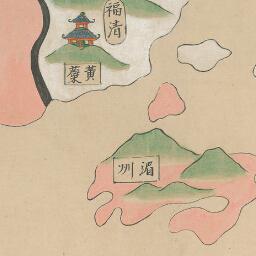 福清
黃蘗
湄州